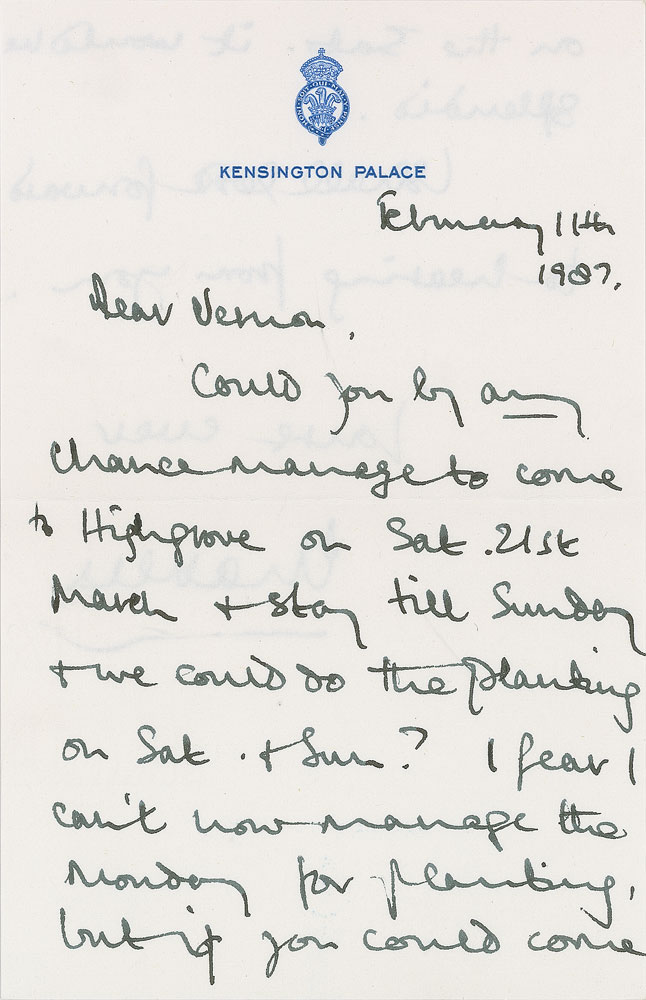 KENSINGTON PALACE
February 11th
1987.
Dear Vernon,
Could you by any
chance manage to come
to Highgrove on Sat. 21st
March + stay till Sunday
+ we could do the planting
on Sat. + Sun? I fear I
can't now manage the
Monday for planting,
but if you could come